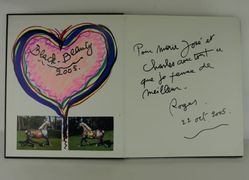 Black-Beauty
2005.
Pour Marie José et
Charles avec tout ce
que je pense de
meilleur.
Roger
22 oct 2005